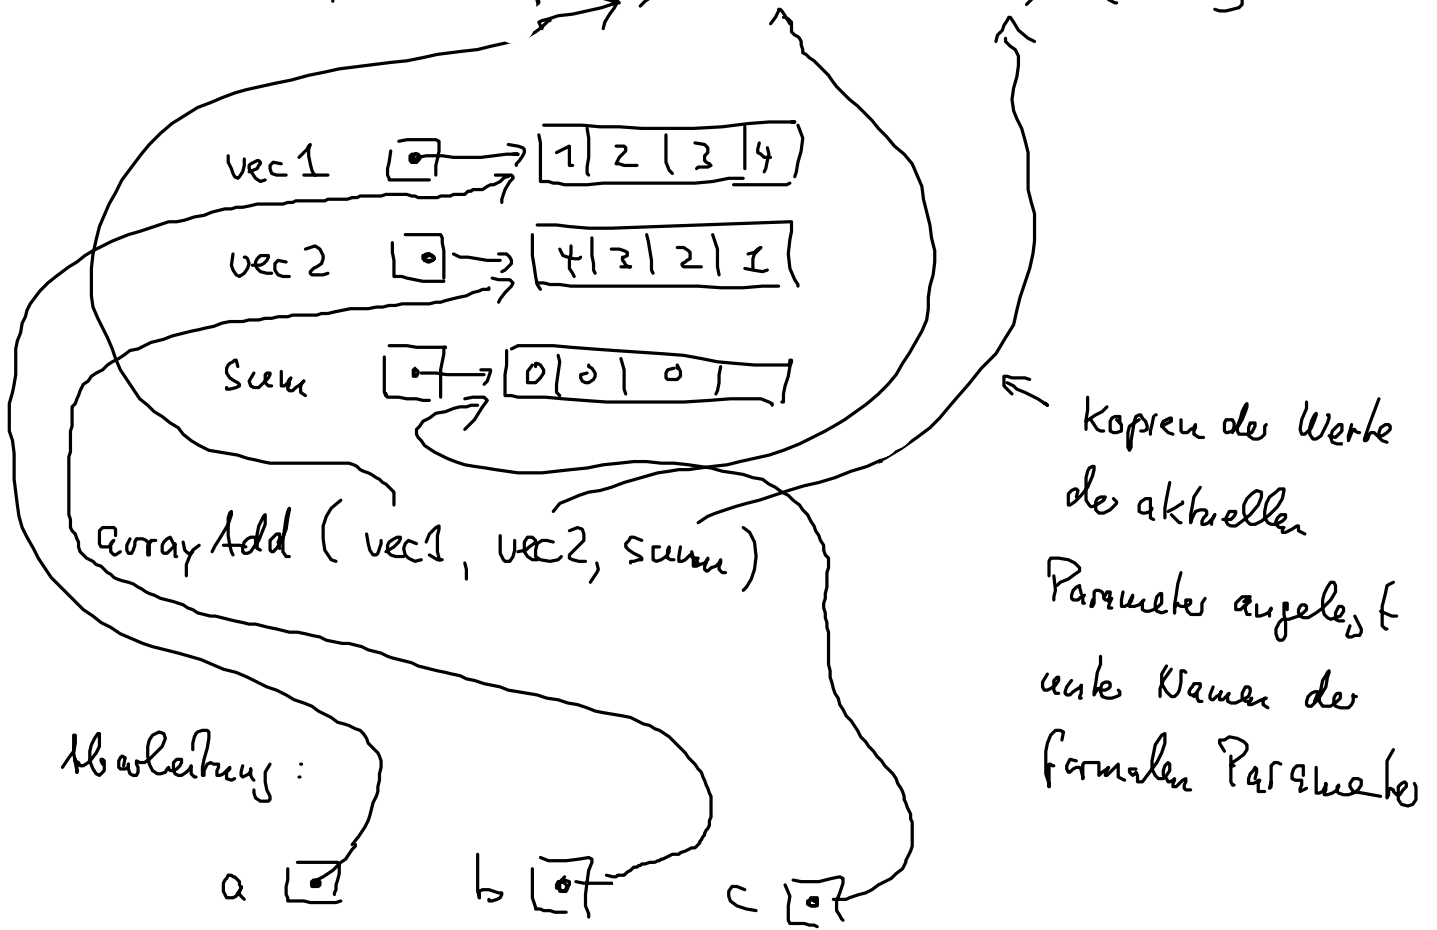 vec1 1 2 3 4
vec2 4 3 2 1
sum 0 0 0
arrayAdd (vec1, vec2, sum)
Kopien der Werte
der aktuellen
Parameter angelegt
unter Namen der
formalen Parameter
Abarbeitung :
a b c